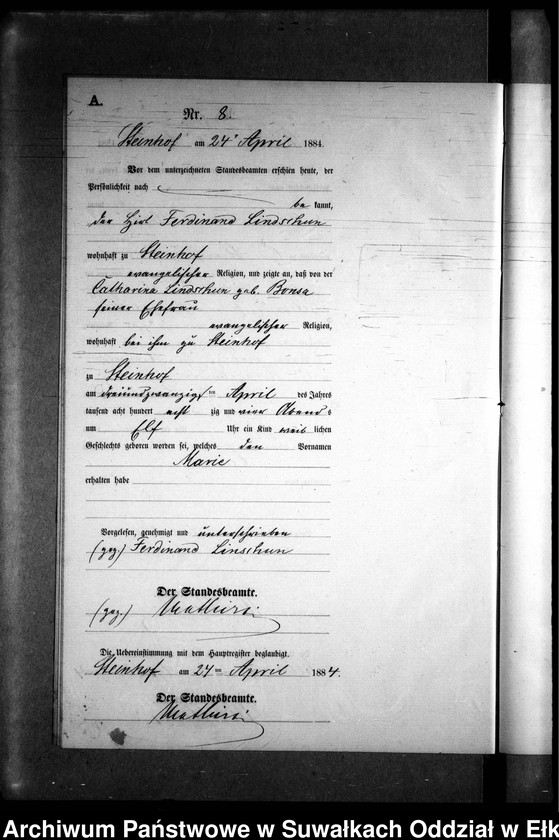 A.
Nr. 8.
Steinhof am 24ᵗ April 1884.
Vor dem unterzeichneten Standesbeamten erschien heute, der
Persönlichkeit nach
be kannt,
der Hirt Ferdinand Lindschun
wohnhaft zu Steinhof
evangelischer Religion, und zeigte an, daß von der
Catharina Lindschun geb. Bonsa
seiner Ehefrau
evangelischer Religion,
wohnhaft bei ihm zu Steinhof
zu Steinhof
am dreiundzwanzigsten April des Jahres
tausend acht hundert acht zig und vier Abends
um Elf Uhr ein Kind weib lichen
Geschlechts geboren worden sei, welches den Vornamen
Marie
erhalten habe
Vorgelesen, genehmigt und unterschrieben
(gez.) Ferdinand Linschun
Der Standesbeamte.
(gez.)
Die Uebereinstimmung mit dem Hauptregister beglaubigt.
Steinhof am 24ten April 1884.
Der Standesbeamte.
Archiwum Państwowe w Suwałkach Oddział w Ełk